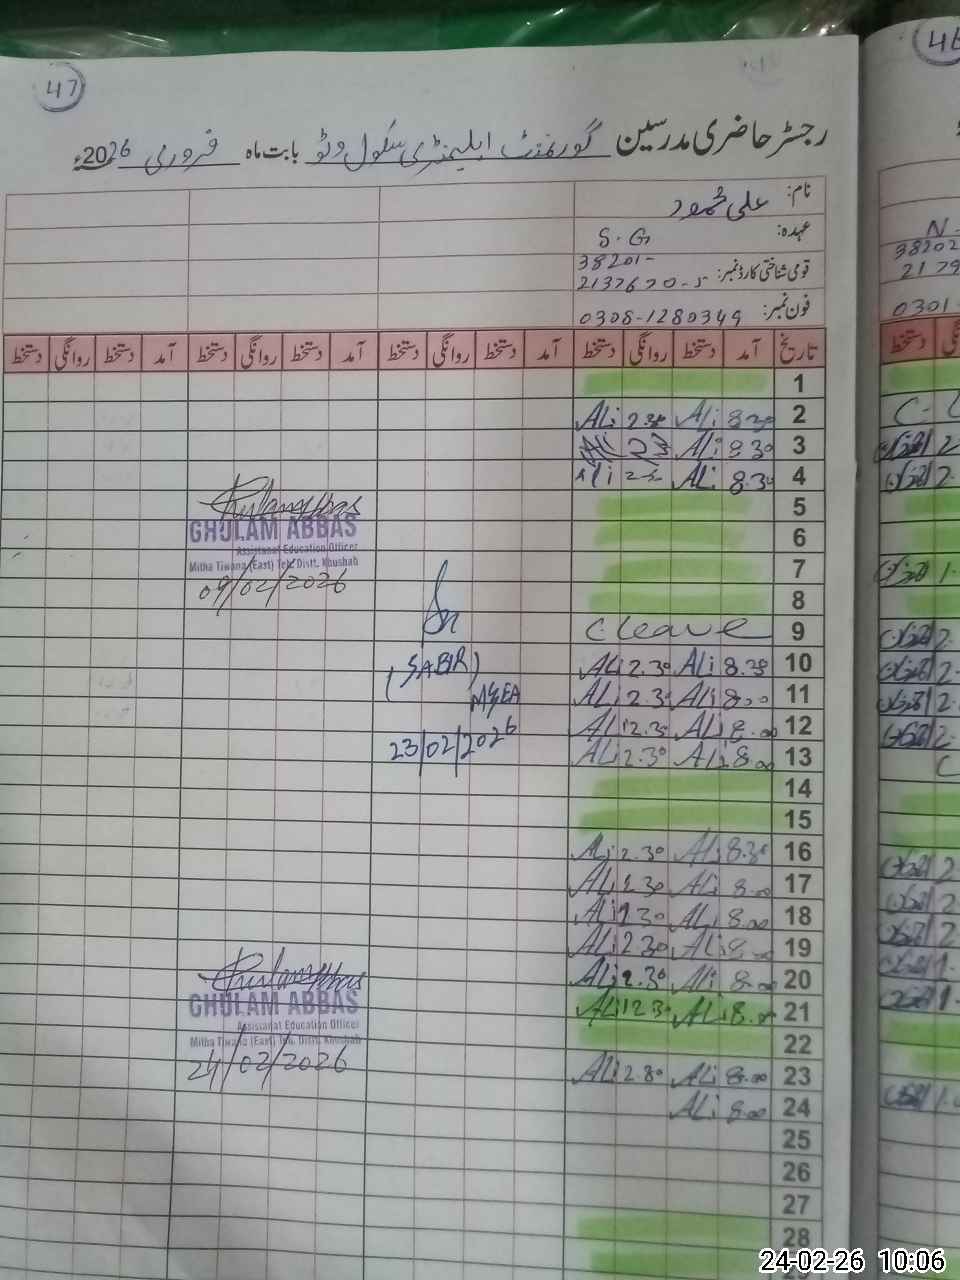 47
رجسٹر حاضری مدرسین گورنمنٹ ایلیمنٹری سکول وٹو بابت ماہ فروری 2026ء
نام: علی محمود
عہدہ: S.G
قومی شناختی کارڈ نمبر: 38201-
فون نمبر: 0308-1280349
تاریخ آمد دستخط روانگی دستخط آمد دستخط روانگی دستخط آمد دستخط روانگی دستخط
1
2 8.30 ALi 2.30 ALi
3 8.30 ALi
4 8.30 ALi
5
6
7
8
9 C leave
10 8.30 ALi 2.30 ALi
11 8.00 ALi 2.30 ALi
12 8.00 ALi 12.30 ALi
13 8.00 ALi 2.30 ALi
14
15
16 8.30 ALi 2.30 ALi
17 8.00 ALi 2.30 ALi
18 8.00 ALi 2.30 ALi
19 8.00 ALi 2.30 ALi
20 8.00 ALi 2.30 ALi
21 8.00 ALi 12.30 ALi
22
23 8.00 ALi 2.30 ALi
24 8.00 ALi
25
26
27
28
GHULAM ABBAS
Assistant Education Officer
Mitha Tiwana (East) Teh. Distt. Khushab
09/02/2026
(SABIR)
MEA
23/02/2026
GHULAM ABBAS
Assistant Education Officer
Mitha Tiwana (East) Teh. Distt. Khushab
24/02/2026
46
38202
0301
دستخط
24-02-26 10:06